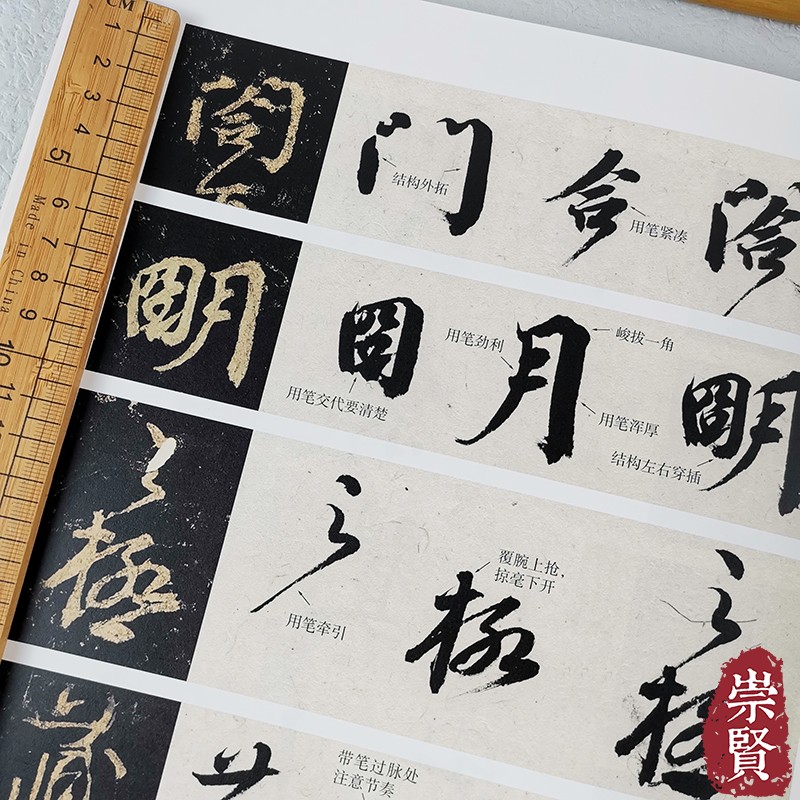 CM
1
2
3
5
6
7
8
9
10
11
Made in China
閤
门
结构外拓
合
用笔紧凑
閤
明
囧
用笔交代要清楚
用笔劲利
月
峻拔一角
用笔浑厚
明
结构左右穿插
之
极
之
用笔牵引
极
覆腕上抢，
掠毫下开
之
极
藏
艹
带笔过脉处
注意节奏
崇賢